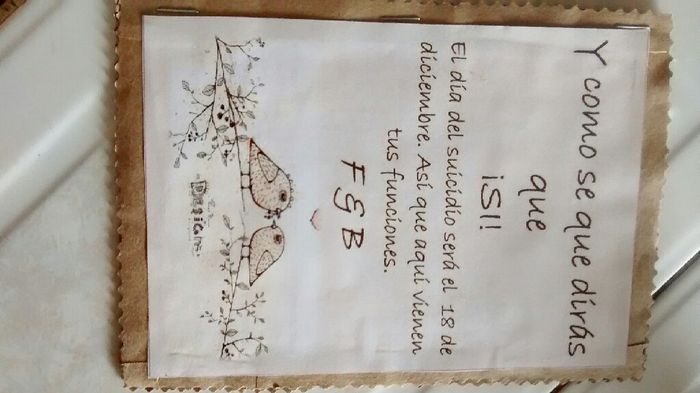 Y como se que dirás
que
¡SI!
El día del suicidio será el 18 de
diciembre. Así que aquí vienen
tus funciones.
F & B
Design